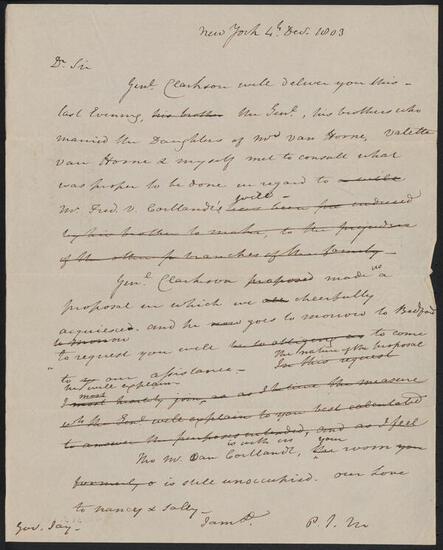 New York 4th Dec. 1803
Dr Sir
Genl. Clarkson will deliver you this -
last Evening, his brother the Genl., his brothers who
married the Daughters of Mrs Van Horne, Valette
Van Horne & myself met to consult what
was proper to be done in regard to
Mr. Fred. V. Cortlandt's will
by his brother to make, to the prejudice
of the other branches of the family -
Genl. Clarkson proposed made a
proposal in which we all cheerfully
acquiesced. and he goes to morrow to Bedford
to request you will be so obliging as to come
to our assistance - The nature of the proposal
he will explain In this request
I most as I think the measure
wh. the Genl will explain to you best calculated
to answer the purposes intended, and as I feel
Tho Mr. Van Cortlandt, is with us your room you
formerly is still unoccupied. our Love
to Nancy & Sally -
Gov. Jay -
I am &
P. J. M